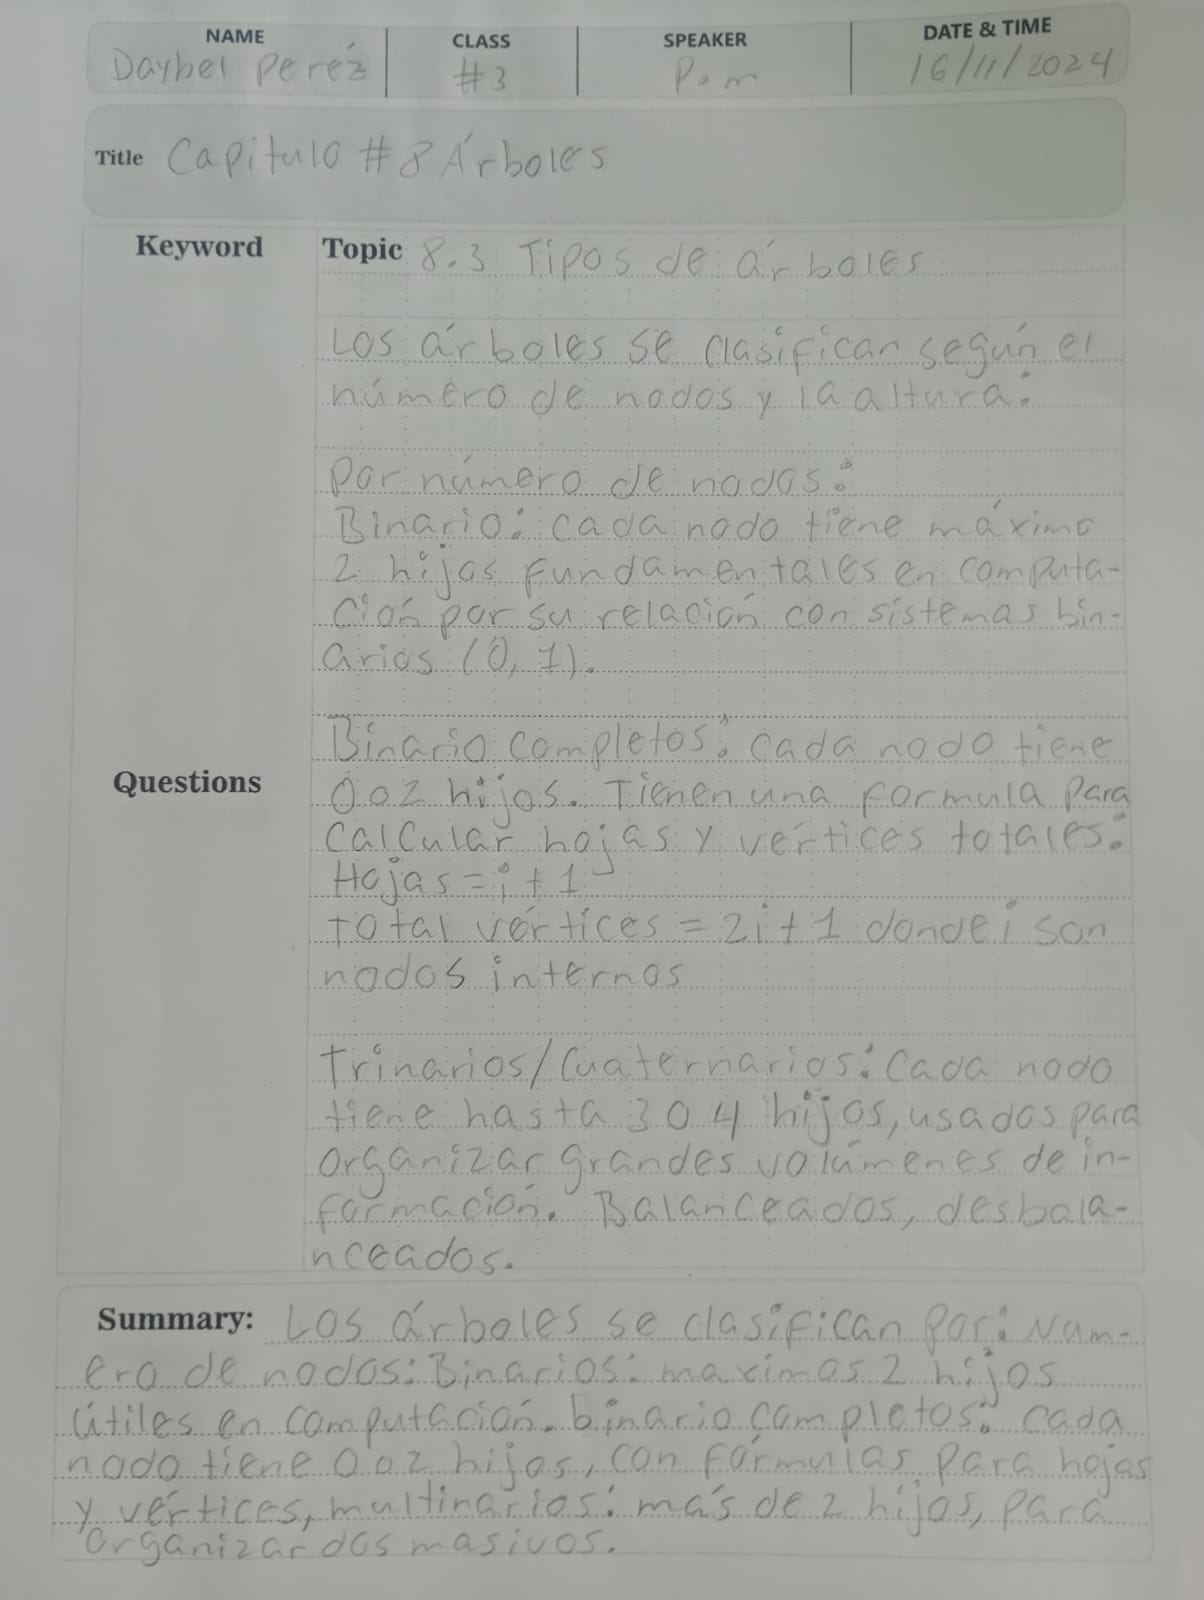 NAME CLASS SPEAKER DATE & TIME
Daybel Peréz #3 P.m 16/11/2024
Title Capitulo #8 Árboles
Keyword Topic 8.3 Tipos de árboles
Los árboles se clasifican según el
número de nodos y la altura:
Por número de nodos:
Binario: cada nodo tiene máximo
2 hijos fundamentales en computa-
ción por su relación con sistemas bin-
arios (0, 1).
Binario completos: cada nodo tiene
Questions 0 o 2 hijos. Tienen una formula para
calcular hojas y vértices totales:
Hojas = i + 1
total vértices = 2i + 1 donde i son
nodos internos
Trinarios/Cuaternarios: Cada nodo
tiene hasta 3 o 4 hijos, usados para
organizar grandes volúmenes de in-
formación. Balanceados, desbala-
nceados.
Summary: Los árboles se clasifican por: Num-
ero de nodos: Binarios: maximos 2 hijos
útiles en computación. binario completos: cada
nodo tiene 0 o 2 hijos, con fórmulas para hojas
y vértices, multinarios: más de 2 hijos, para
organizar dos masivos.